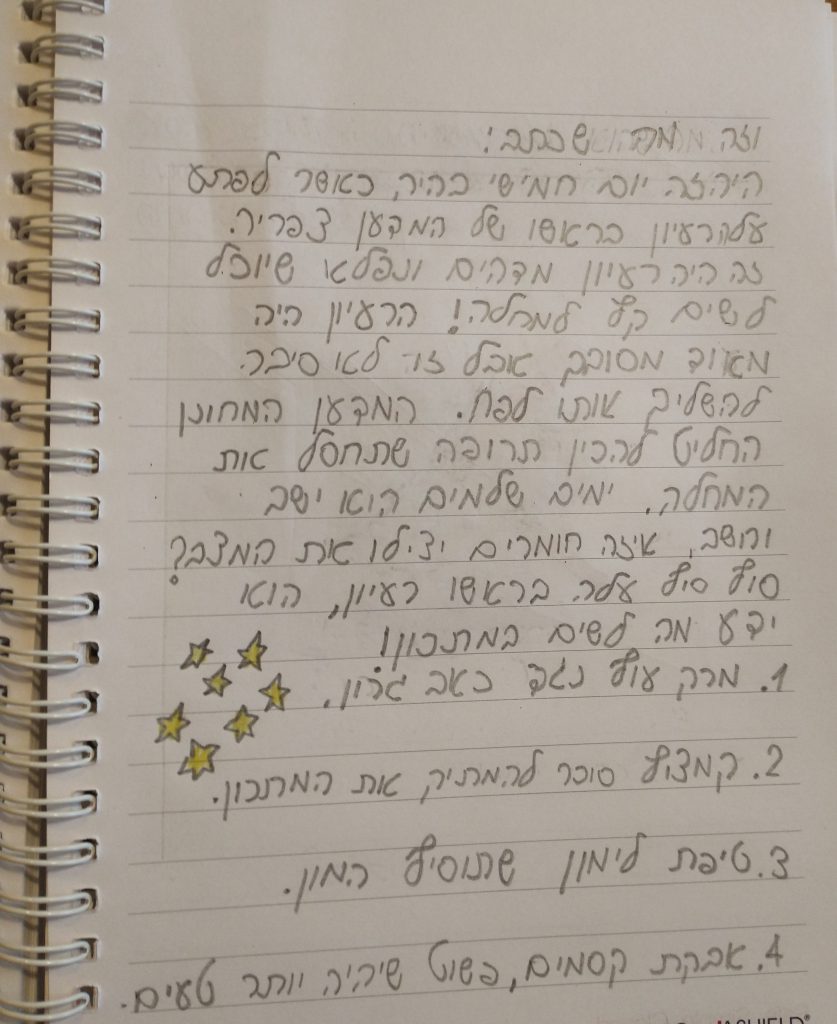 וזה מה שכתב:
היה זה יום חמישי בהיר, כאשר לפתע
עלה רעיון בראשו של המדען צפריר.
זה היה רעיון מדהים ונפלא שיוכל
לשים קץ למחלה! הרעיון היה
מאוד מסובך אבל זו לא סיבה
להשליך אותו לפח. המדען המחונן
החליט להכין תרופה שתחסל את
המחלה. ימים שלמים הוא ישב
וחשב, איזה חומרים יצילו את המצב?
סוף סוף עלה בראשו רעיון, הוא
ידע מה לשים במתכון!
1. מרק עוף נגד כאב גרון.
2. קמצוץ סוכר להמתיק את המתכון.
3. טיפת לימון שתוסיף המון.
4. אבקת קסמים, פשוט שיהיה יותר טעים.